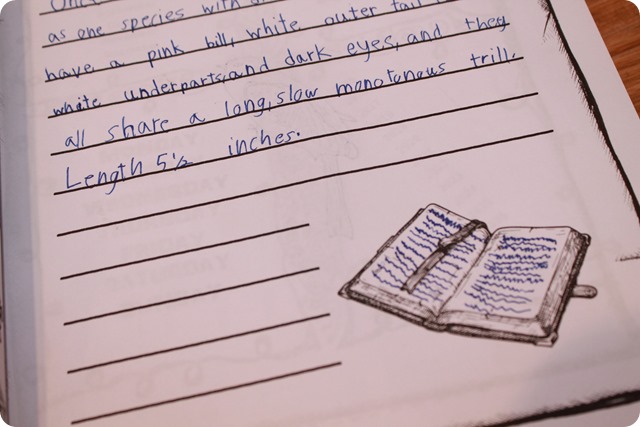 as one species with
have a pink bill, white outer tail
white underparts, and dark eyes, and they
all share a long, slow monotonous trill.
Length 5½ inches.